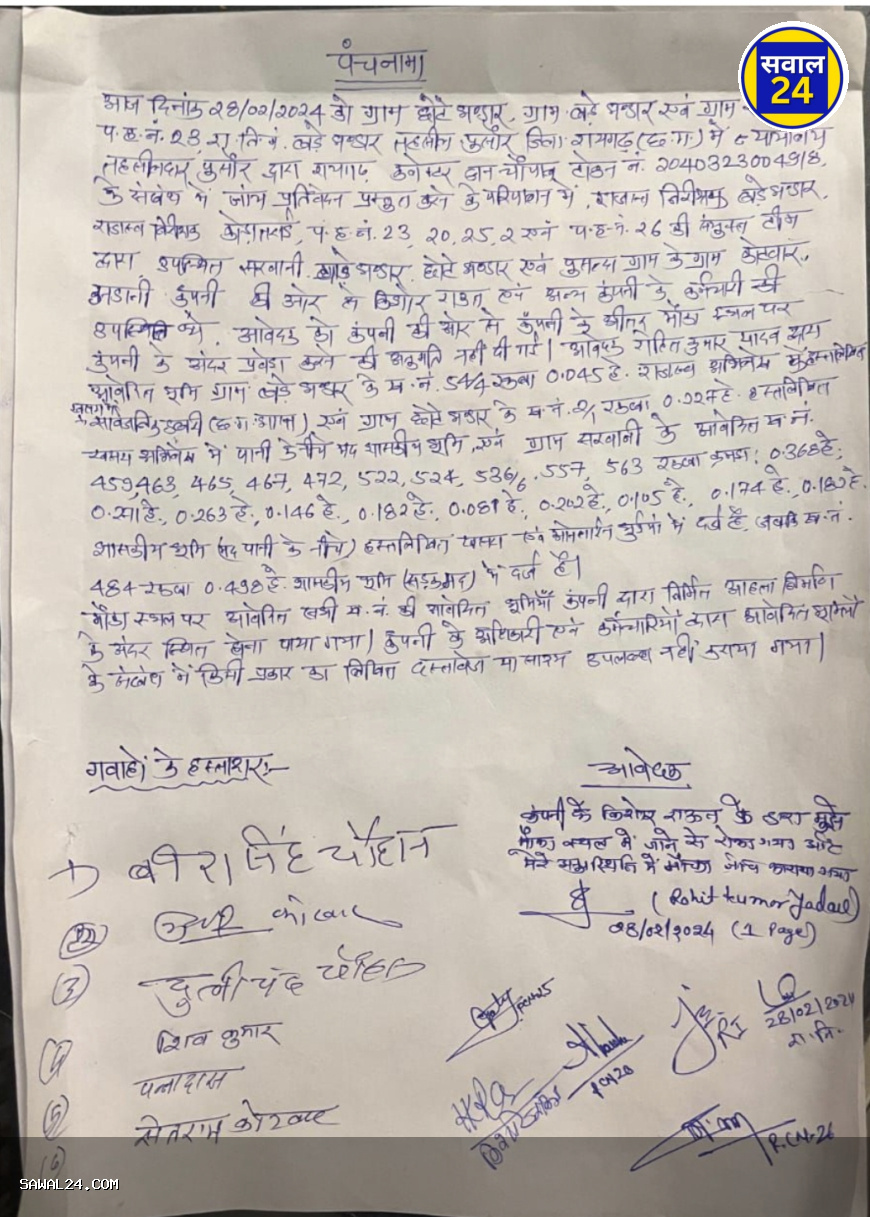 पंचनामा
सवाल
24
आज दिनांक 28/02/2024 को ग्राम छोटे भण्डार, ग्राम बड़े भण्डार एवं ग्राम
प.ह.नं. 23, रा.नि.मं. बड़े भण्डार तहसील पुसौर जिला रायगढ़ (छ.ग.) में न्यायालय
तहसीलदार पुसौर द्वारा कलेक्टर जन चौपाल टोकन नं.
के संबंध में जांच प्रतिवेदन प्रस्तुत करने के परिपालन में, राजस्व निरीक्षक बड़े भण्डार,
राजस्व निरीक्षक कोड़ातराई, प.ह.नं. 23, 20, 25, 2 एवं प.ह.नं. 26 की संयुक्त टीम
द्वारा उपस्थित सरवानी, बड़े भण्डार, छोटे भण्डार एवं ग्राम के ग्राम कोटवार,
अडानी कंपनी की ओर से किशोर राऊत एवं अन्य कंपनी के कर्मचारी की
उपस्थिति थे, आवेदक को कंपनी की ओर से कंपनी के भीतर मौका स्थल पर
कंपनी के अंदर प्रवेश करने की अनुमति नहीं दी गई। आवेदक रोहित कुमार यादव द्वारा
आवेदित भूमि ग्राम बड़े भण्डार के ख.नं. 54/4 रकबा 0.045 हे. राजस्व अभिलेख के हस्तलिखित
(छ.ग. शासन) एवं ग्राम छोटे भण्डार के ख.नं. 2/1 रकबा 0.227 हे. हस्तलिखित
खसरा अभिलेख में पानी के नीचे मद शासकीय भूमि, एवं ग्राम सरवानी के आवेदित ख.नं.
459, 463, 465, 467, 472, 522, 524, 536/6, 557, 563 रकबा क्रमशः 0.368 हे.,
0.263 हे., 0.146 हे., 0.182 हे., 0.081 हे., 0.202 हे., 0.105 हे., 0.174 हे., 0.182 हे.
शासकीय भूमि (मद पानी के नीचे) हस्तलिखित खसरा एवं ऑनलाईन भुईयां में दर्ज है, जबकि ख.नं.
484 रकबा 0.498 हे. शासकीय भूमि (सड़क मद) में दर्ज है।
मौका स्थल पर आवेदित सभी ख.नं. की आवेदित भूमियाँ कंपनी द्वारा निर्मित अहाता निर्माण
के अंदर स्थित होना पाया गया। कंपनी के अधिकारी एवं कर्मचारियों द्वारा आवेदित भूमियों
के संबंध में किसी प्रकार का लिखित दस्तावेज या साक्ष्य उपलब्ध नहीं कराया गया।
गवाहों के हस्ताक्षर:-
आवेदक
कंपनी के किशोर राऊत के द्वारा मुझे
मौका स्थल में जाने से रोका गया और
मेरे अनुपस्थिति में मौका जांच कराया गया
(Rohit kumar Yadav)
28/02/2024 (1 Page)
सिंह चौहान
कोटवार
(3) चंद चौहान
(4) शिव कुमार
पलादास
(5) सेतराम कोटवार
(6)
PCN 25
PCN 20
RI
28/02/2024
रा.नि.
P.C.N. 26
SAWAL24.COM